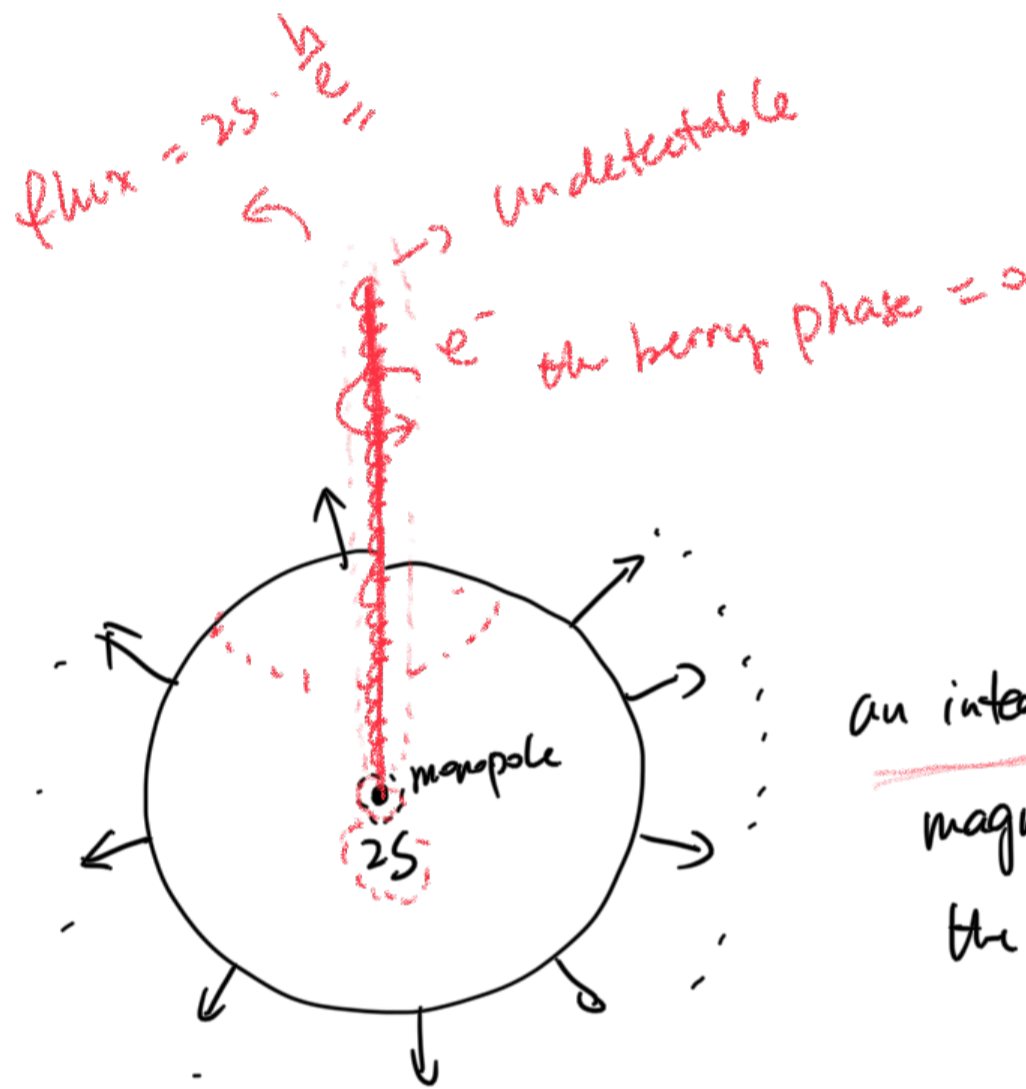 flux = 2S · h/e
undetectable
e⁻
the berry phase = 0
monopole
2S
an
magn
the